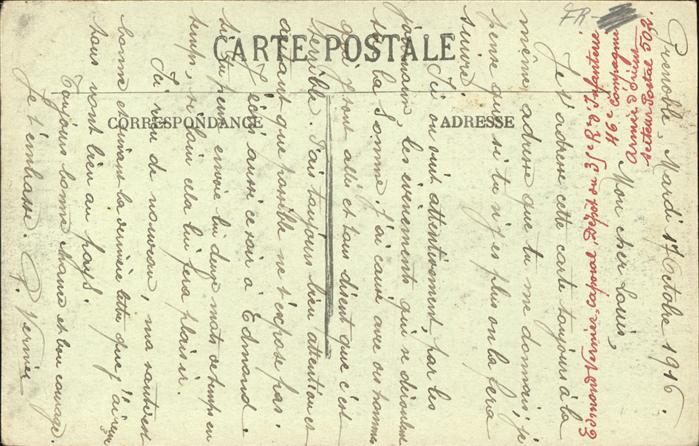 CARTE POSTALE
CORRESPONDANCE
ADRESSE
FR
Grenoble, Mardi 17 Octobre 1916.
Mon cher Louis,
Je t'adresse cette carte toujours à la
même adresse que tu me donnais, je
pense que si tu n'y es plus on la fera
suivre.
Ici on suit attentivement, par les
journaux, les évènements qui se déroulent
sur la Somme. J'ai causé avec des hommes
qui y sont allés et tous disent que c'est
terrible. Fais toujours bien attention et
autant que possible ne t'expose pas.
J'écris aussi ce soir à Edmond.
Si tu peux envoie lui deux mots de temps en
temps, si loin cela lui fera plaisir.
Ici rien de nouveau, ma santé est
bonne et suivant la dernière lettre que j'ai reçue
tous vont bien au pays.
Toujours bonne chance et bon courage.
Je t'embrasse. G. Vernier
Edmond Vernier caporal Dépôt ou 35e R. d'Infanterie
Compagnie
Armée d'Orient
secteur Postal 502.